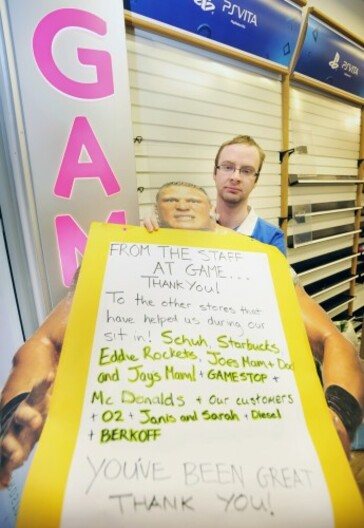 GAM
PSVITA
PSVITA
FROM THE STAFF
AT GAME...
THANK YOU!
To the other stores that
have helped us during our
sit in! Schuh, Starbucks,
Eddie Rockets, Joes Mam + Dad
and Jays Mam! + GAMESTOP +
Mc Donalds + our customers
+ O2 + Janis and Sarah + Diesel
+ BERKOFF
YOU'VE BEEN GREAT
THANK YOU!